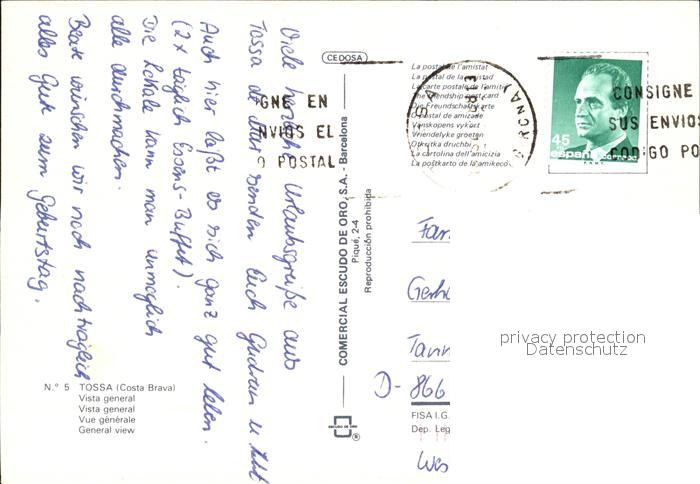 Viele herzliche Urlaubsgrüße aus
Tossa de Mar senden Euch Gudrun u.
Auch hier läßt es sich ganz gut leben.
(2x täglich Essens-Buffet).
Die Lokale kann man unmöglich
alle durchmachen.
Beate wünschen wir noch nachträglich
alles Gute zum Geburtstag.
CEDOSA
La postal de l'amistat
La postal de la amistad
La carte postale de l'amitié
The friendship post card
Die Freundschaftskarte
O postal de amizade
Vänskapens vykort
Vriendelyke groeten
Otkritka druchbi
La cartolina dell'amicizia
La postkarto de la amikeco
GNE EN
NVIOS EL
O POSTAL
CONSIGNE
SUS ENVIOS
CODIGO PO
45
españa
correos
COMERCIAL ESCUDO DE ORO, S.A. - Barcelona
Piqué, 2-4
Reproducción prohibida
Fam
Gerh
Tann
D-866
FISA I.G.
Dep. Leg
Wes
privacy protection
Datenschutz
N.º 5 TOSSA (Costa Brava)
Vista general
Vista general
Vue générale
General view